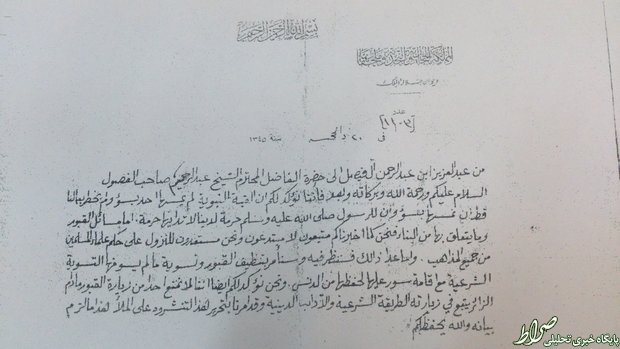 بسم الله الرحمن الرحيم
المملكة الحجازية النجدية وملحقاتها
ديوان جلالة الملك
عدد
[٣-١١]
في ٢٠ ذي الحجة سنة ١٣٤٥
من عبدالعزيز ابن عبدالرحمن آل فيصل الى حضرة الفاضل المحترم الشيخ عبدالرحيم صاحب الفصول
السلام عليكم ورحمة الله وبركاته وبعد فاننا نؤكد لكم ان القبة النبوية لم يمسها احد بسوء ولم يخطر ببالنا
قط ان نمسها بسوء وان للرسول صلى الله عليه وسلم حرمة لدينا لا تدانيها حرمة، اما مسائل القبور
وما يتعلق بها من البناء فنحن كما اخبرناكم متبعون لا مبتدعون ونحن مستعدون للنزول على حكم علماء المسلمين
من جميع المذاهب. وما عدا ذلك فسننظر فيه وسنأمر بتنظيف القبور وتسوية مالم يسو منها التسوية
الشرعية مع اقامة سور عليها لحفظها من الدنس. ونحن نؤكد لكم ايضا اننا لا نمنع احدا من زيارة القبور مادام
الزائر يتبع في زيارته الطريقة الشرعية والآداب الدينية وقد امرنا بتحرير هذا لتنشروه على الملأ لهذا ما لزم
بيانه والله يحفظكم
صراط
پایگاه خبری تحلیلی